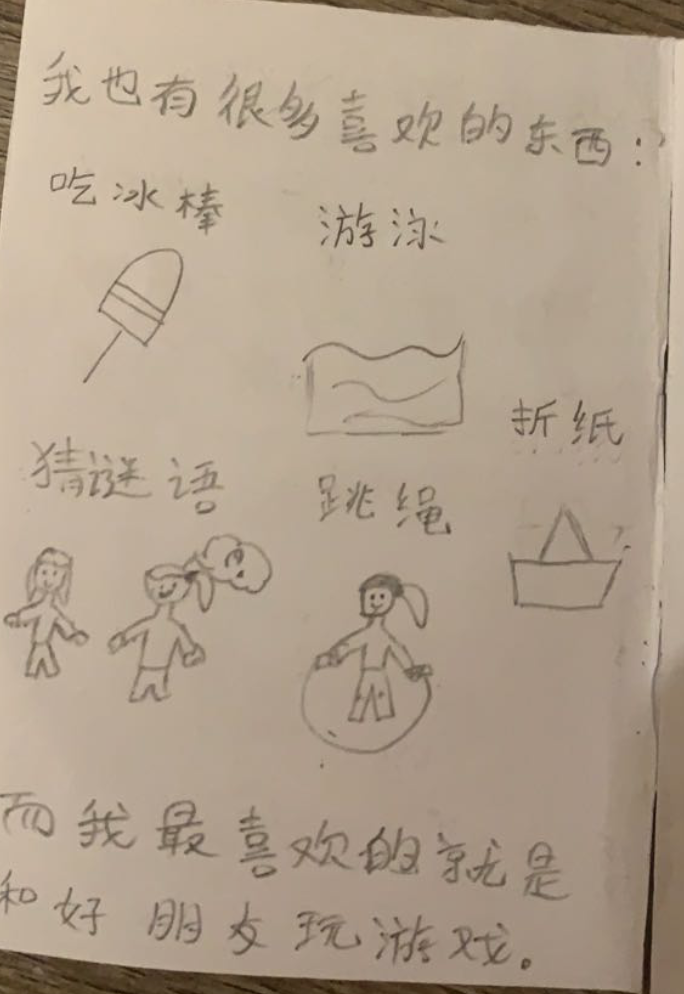 我也有很多喜欢的东西：
吃冰棒
游泳
折纸
猜谜语
跳绳
而我最喜欢的就是
和好朋友玩游戏。